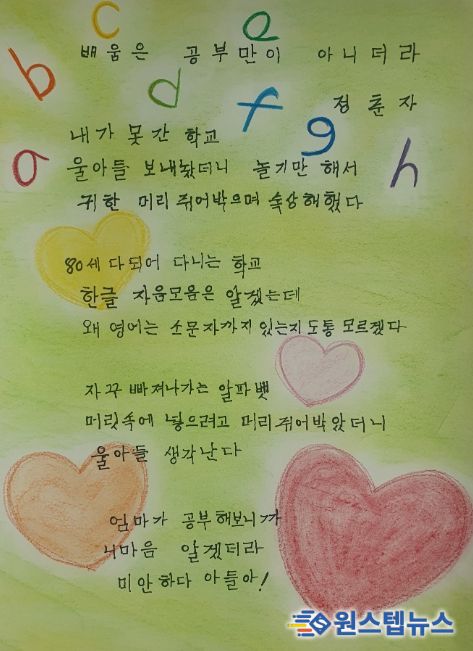 c e
배움은 공부만이 아니더라
b d f
정춘자
g
내가 못간 학교
a h
울아들 보내놨더니 놀기만 해서
귀한 머리 쥐어박으며 속상해했다
80세 다되어 다니는 학교
한글 자음모음은 알겠는데
왜 영어는 소문자까지 있는지 도통 모르겠다
자꾸 빠져나가는 알파벳
머릿속에 넣으려고 머리 쥐어박았더니
울아들 생각난다
엄마가 공부해보니까
니마음 알겠더라
미안하다 아들아!
원스텝뉴스